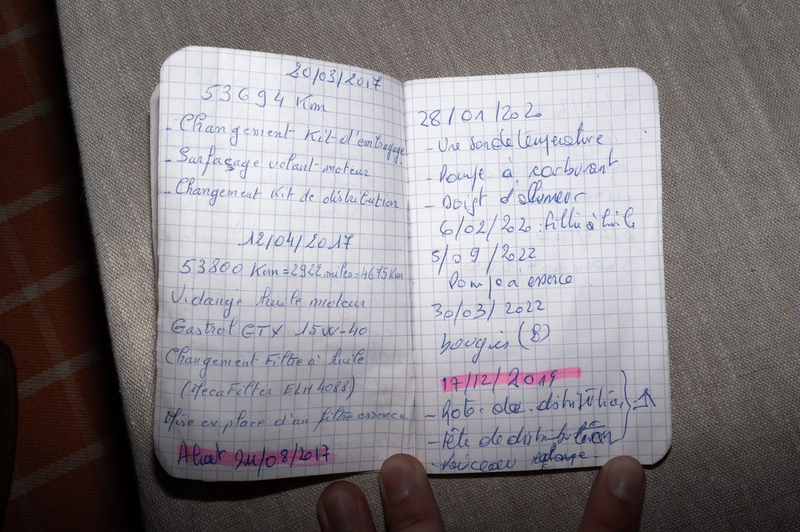 20/03/2017
53694 Km
- Changement Kit d'embrayage
- Surfaçage volant moteur
- Changement Kit de distribution
12/04/2017
53800 Km = 2922 miles = 4675 Km
Vidange huile moteur
Castrol GTX 15W-40
Changement Filtre à huile
(MecaFilter ELH 4088)
Mise en place d'un filtre essence
Achat 24/08/2017
28/01/2020
- Une sonde température
- Pompe à carburant
- Doigt d'alumeur
6/02/2020 : filtre à huile
5/09/2022
Pompe à essence
30/03/2022
bougies (8)
17/12/2019
- de distribution
- Tête de distribution
- faisceau